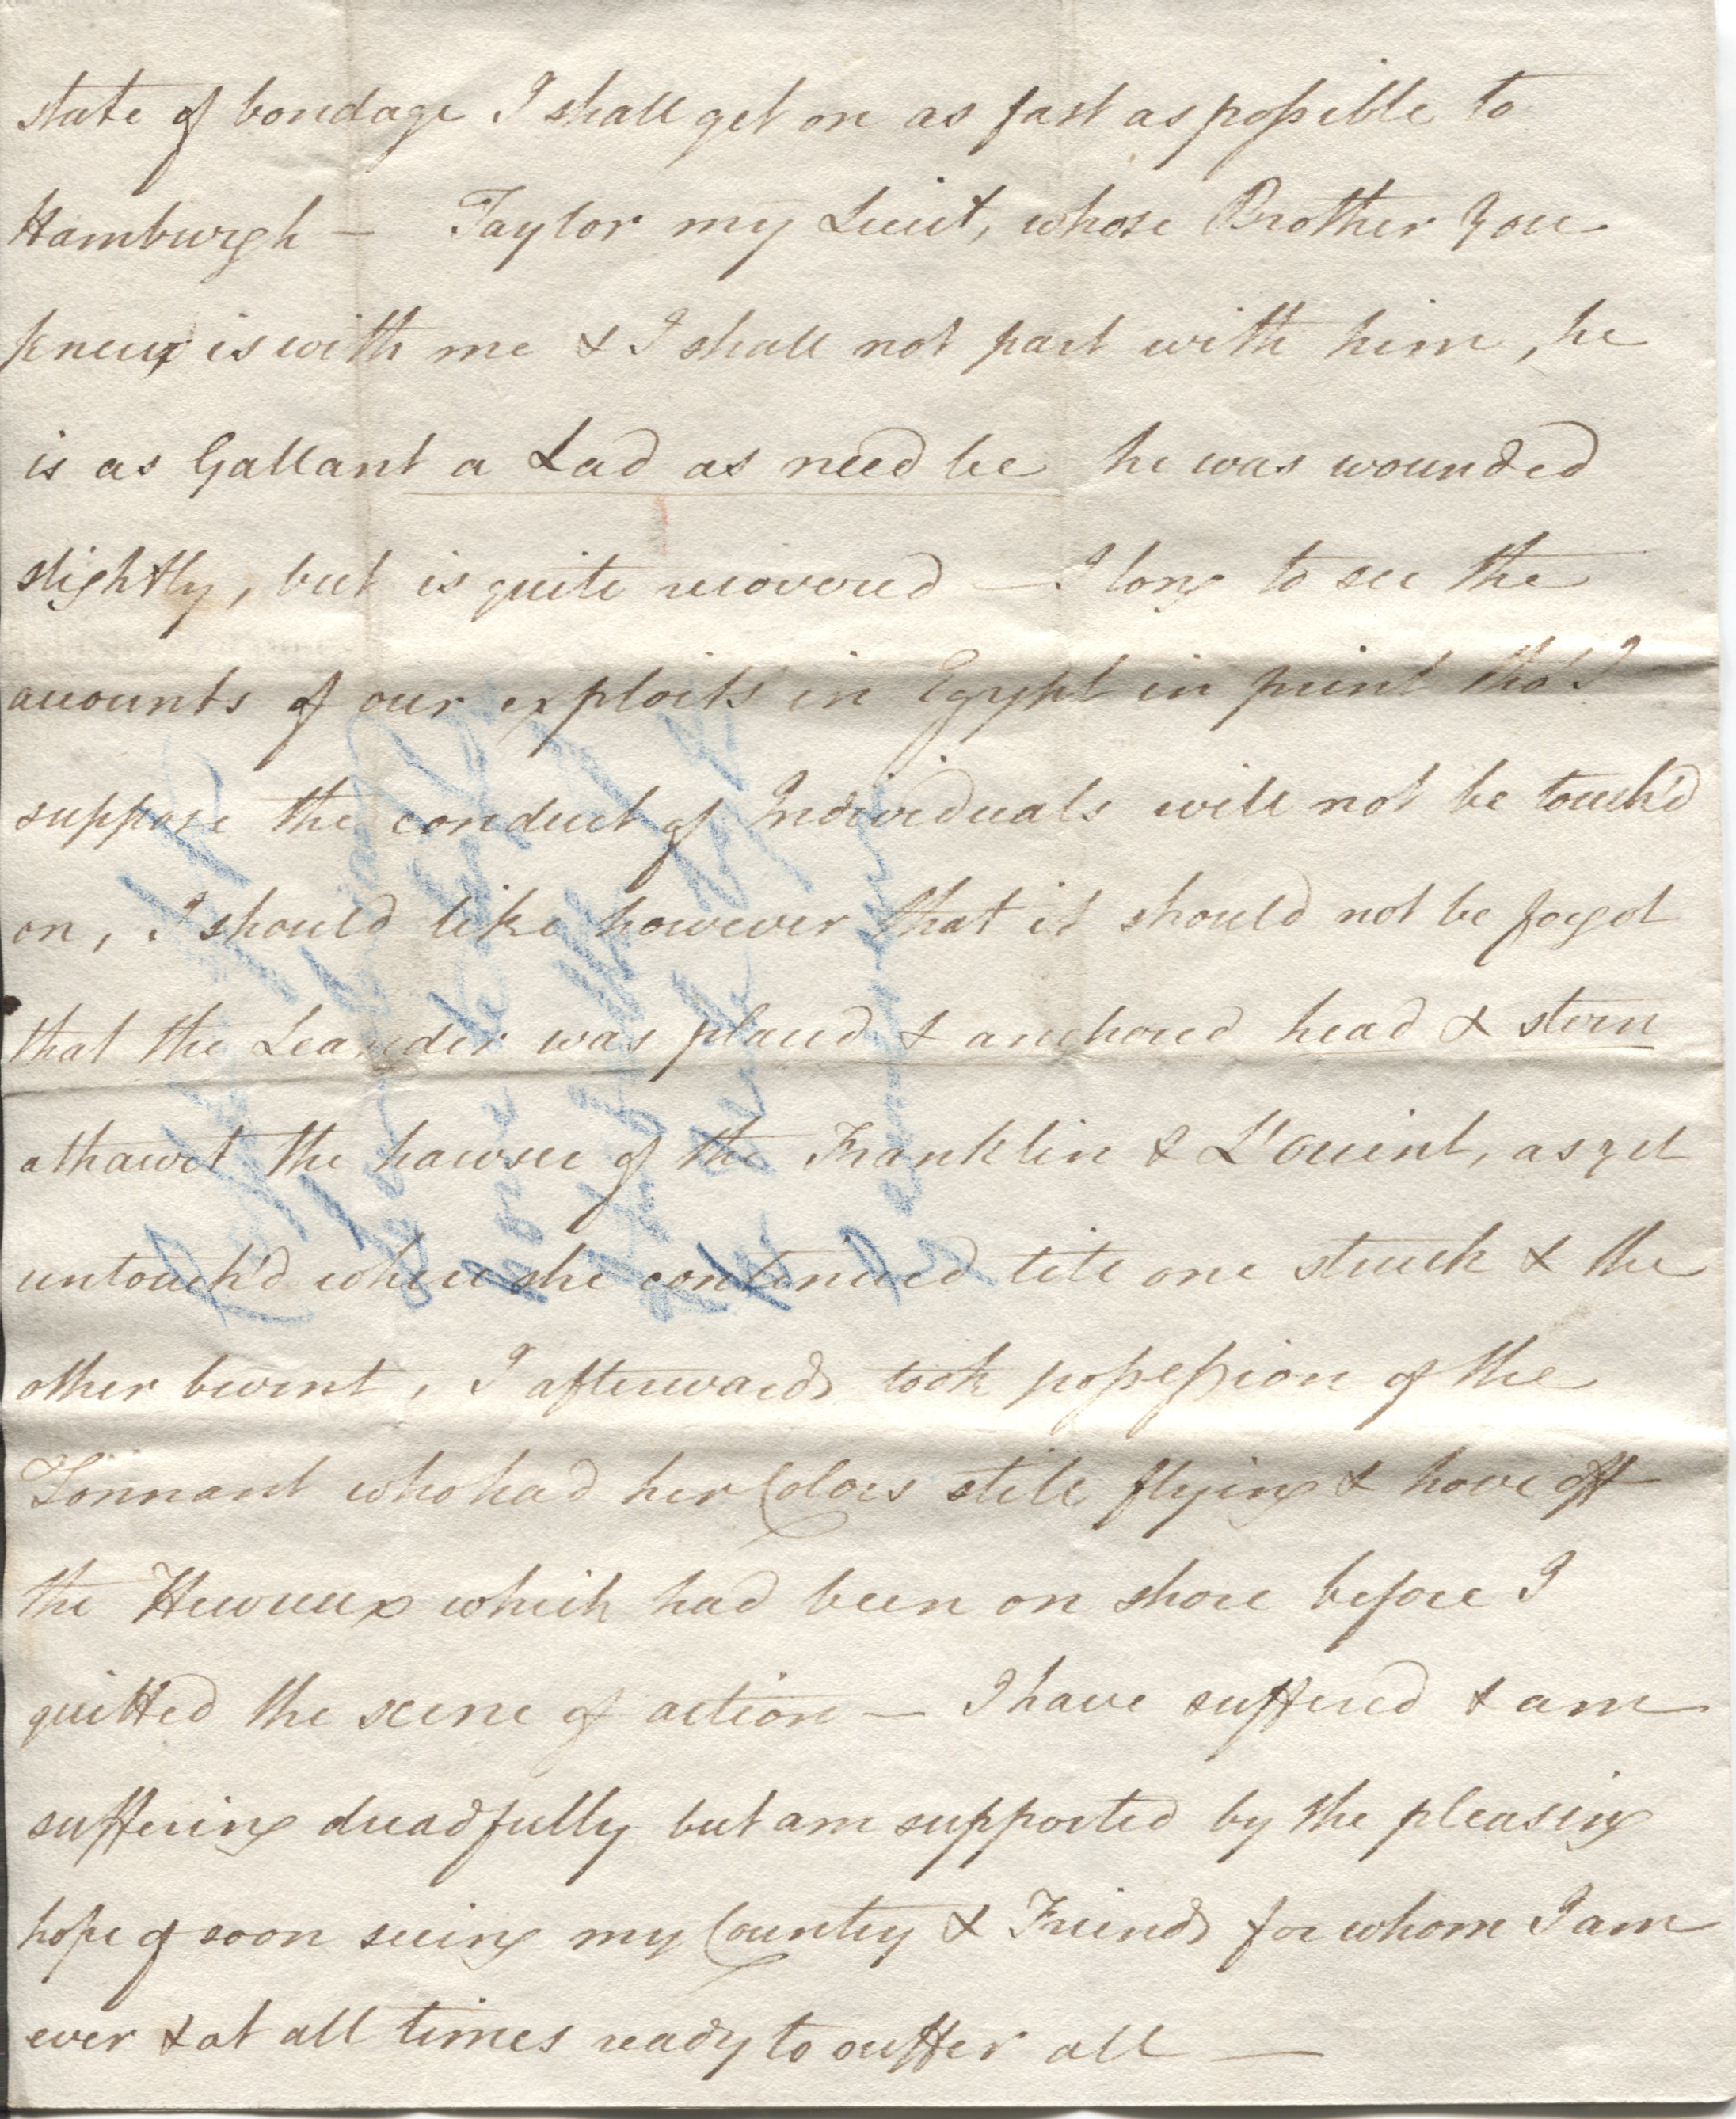 state of bondage I shall get on as fast as possible to
Hamburgh — Taylor my Lieut, whose Brother you
knew is with me & I shall not part with him, he
is as Gallant a Lad as need be he was wounded
slightly, but is quite recovered — I long to see the
accounts of our exploits in Egypt in print tho' I
suppose the conduct of Individuals will not be touch'd
on, I should like however that it should not be forgot
that the Leander was placed & anchored head & stern
athawrt the hawser of the Franklin & L'orient, as yet
untouch'd where she continued till one struck & the
other burnt, I afterwards took possession of the
Tonnant who had her Colors still flying & hove off
the Hewreux which had been on shore before I
quitted the scene of action — I have suffered & am
suffering dreadfully but am supported by the pleasing
hope of soon seeing my Country & Friends for whom I am
ever & at all times ready to suffer all —